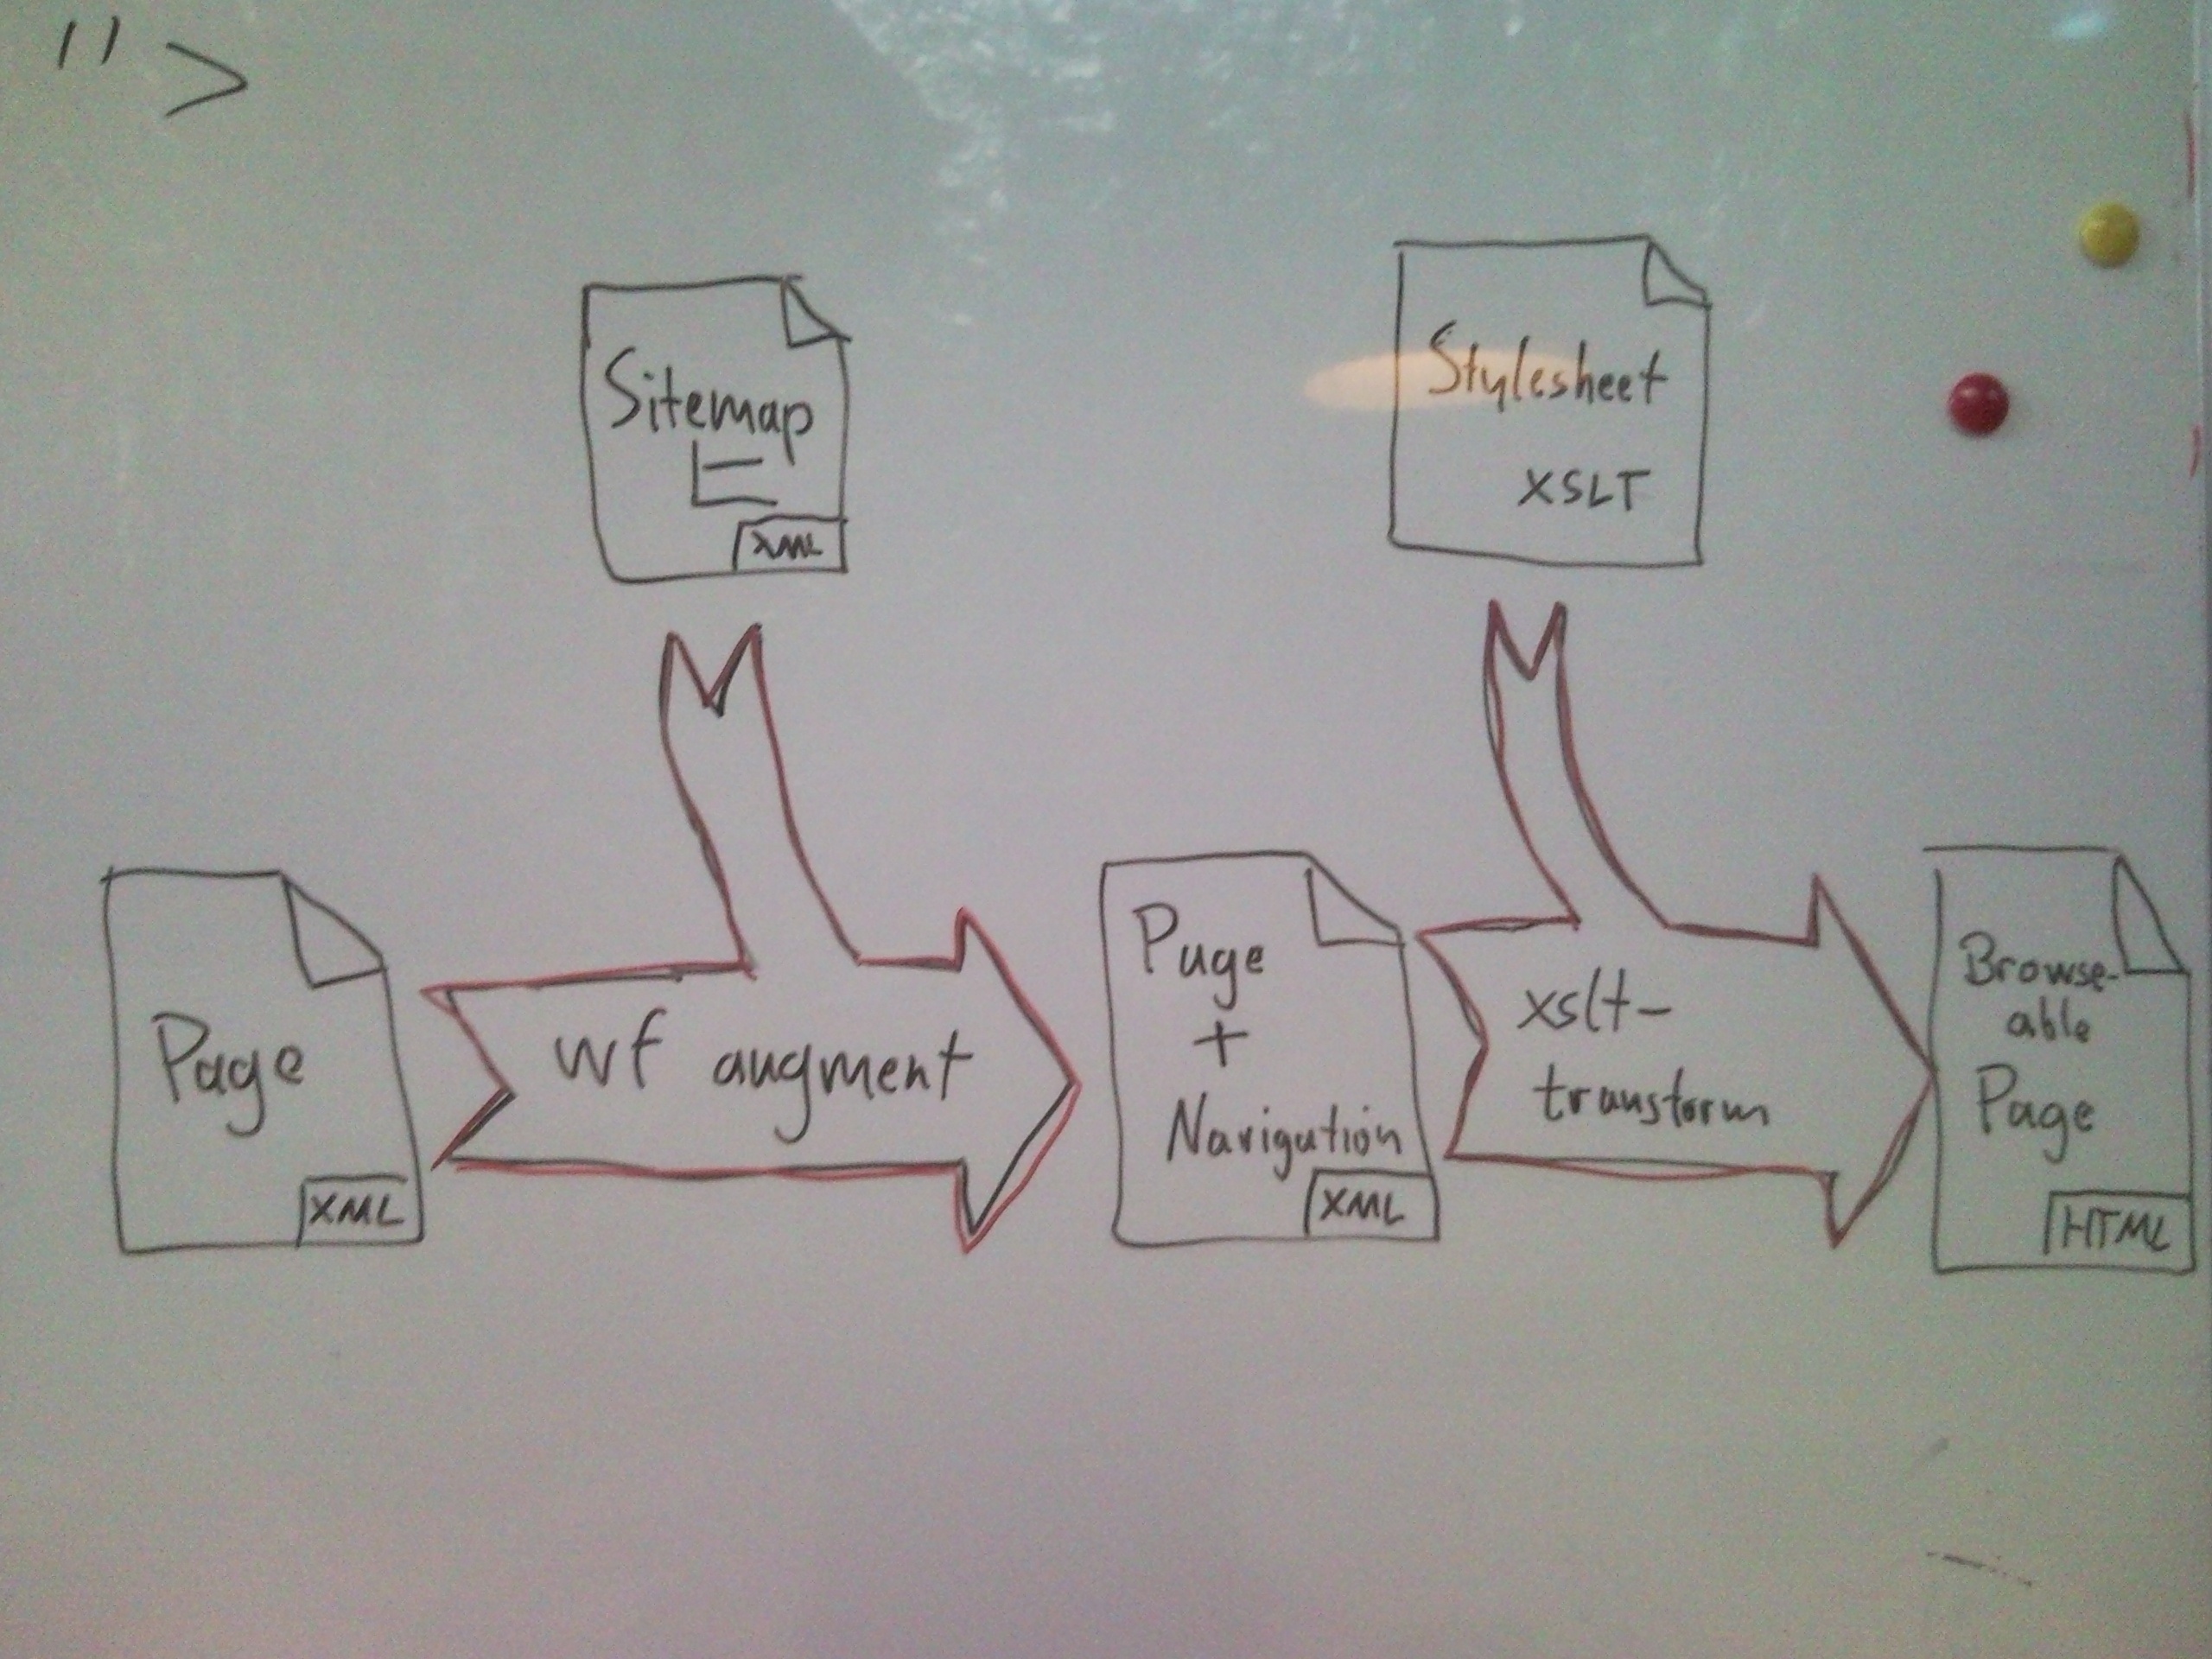 ">
Sitemap
XML
Stylesheet
XSLT
Page
XML
wf augment
Page
+
Navigation
XML
xslt-
transform
Browse-
able
Page
HTML